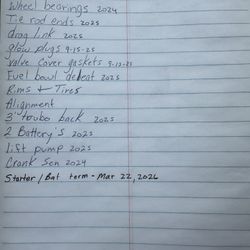 Wheel bearings 2024
Tie rod ends 2025
drag link 2025
glow plugs 9-15-25
valve cover gaskets 9-15-25
Fuel bowl deleat 2025
Rims + Tires
Alignment
3" turbo back 2025
2 Battery's 2025
lift pump 2025
Crank Sen 2024
Starter / Bat term - Mar 22, 2026